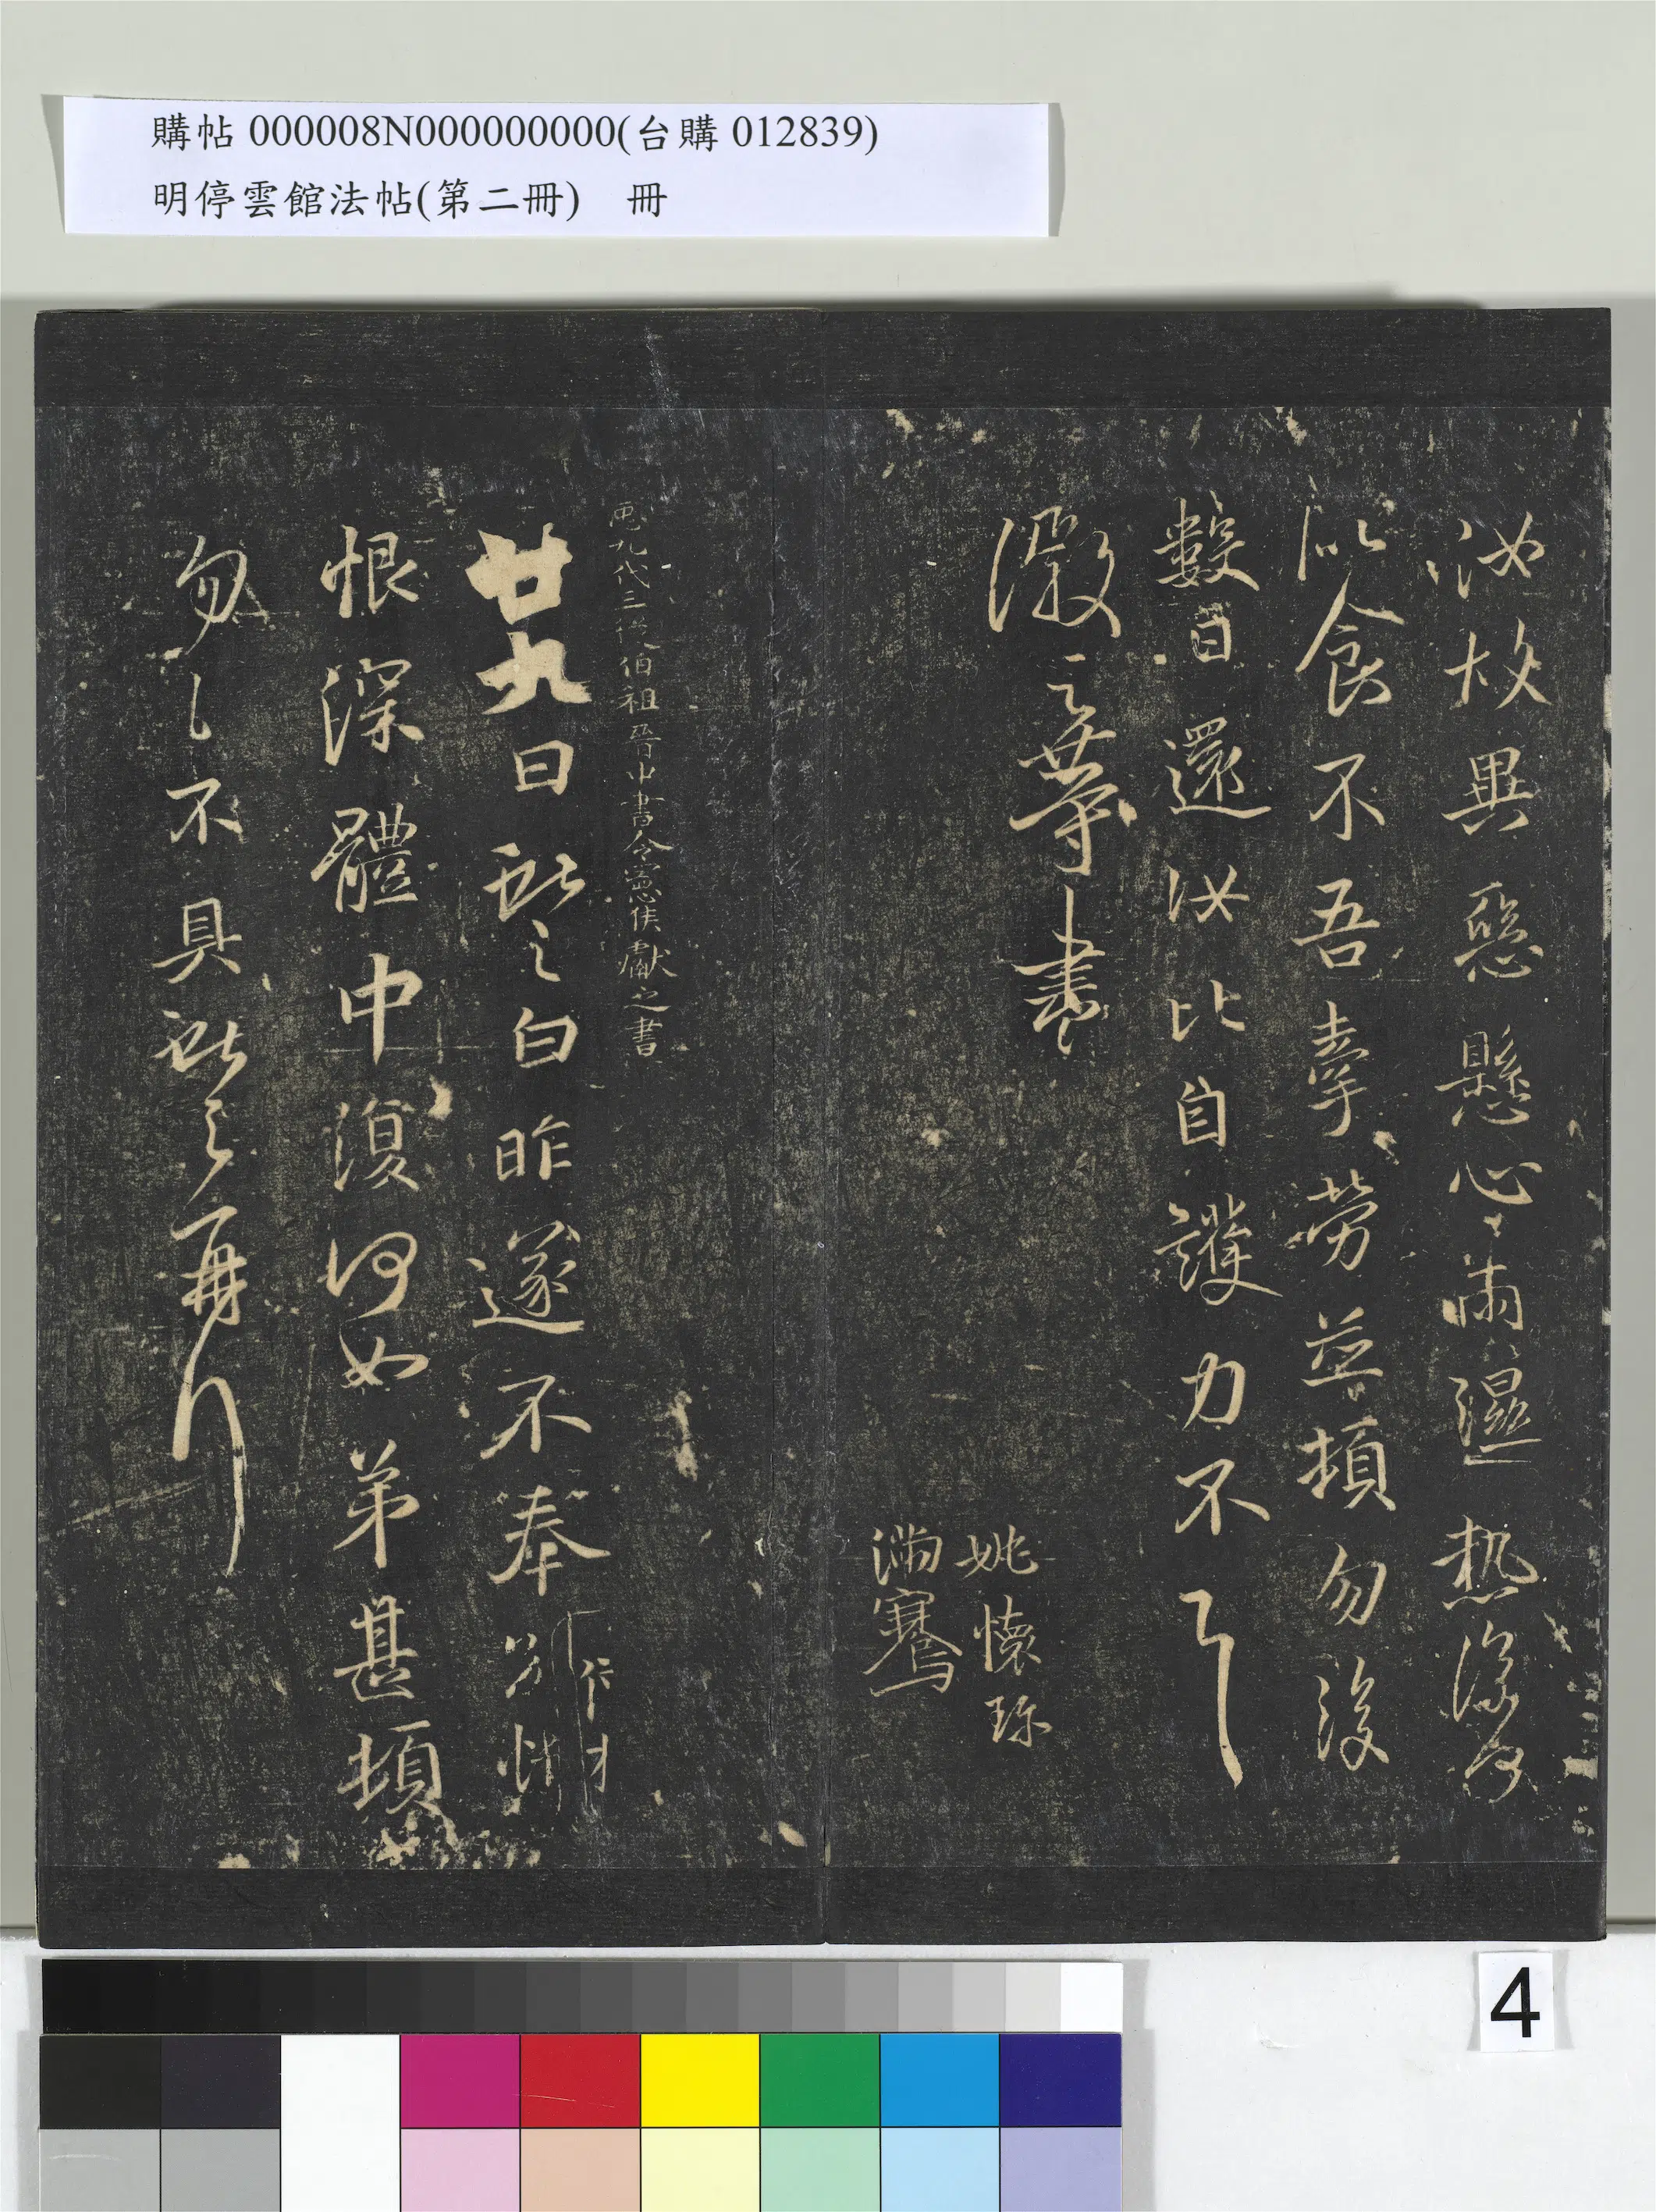 購帖 000008N000000000(台購 012839)
明停雲館法帖(第二冊)　冊
汝故異惡懸心雨濕熱深何
似食不吾牽勞並頓勿復
數日還汝比自護力不一一
徽之等書
姚懷珍
滿騫
九代三從伯祖晉中書令憲侯獻之書
廿九日獻之白昨遂不奉別悵
恨深體中復何如弟甚頓
勿勿不具獻之再拜
4